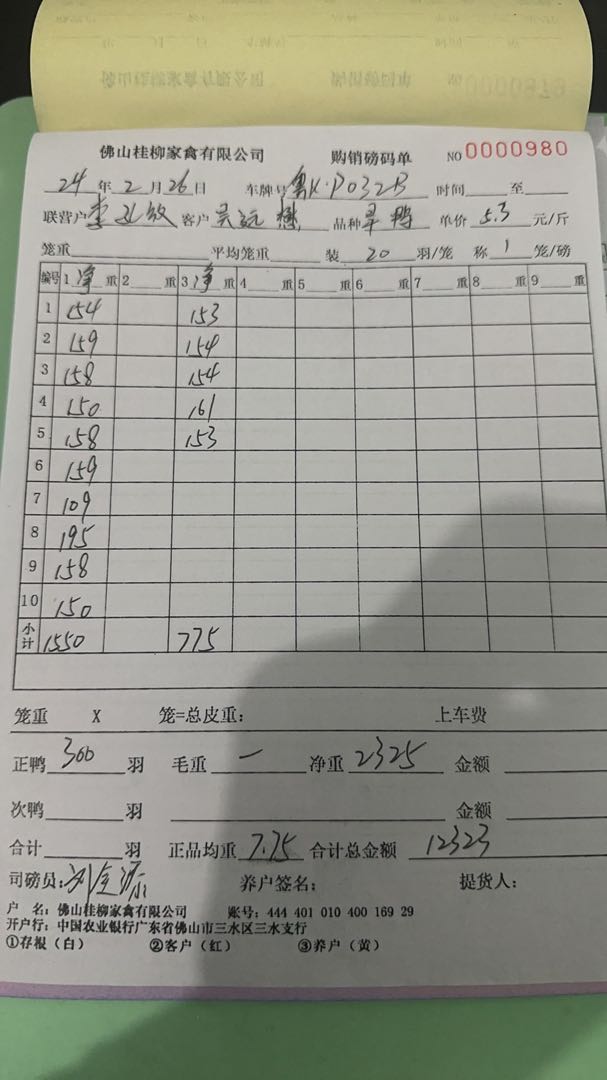 佛山桂柳家禽有限公司 购销磅码单 NO 0000980
24年2月26日 车牌号粤K·P032B 时间 至
联营户李 客户吴远 品种旱鸭 单价5.3元/斤
笼重 平均笼重 装20羽/笼 称1笼/磅
编号 1净重 2 重 3净重 4 重 5 重 6 重 7 重 8 重 9 重
1 154 153
2 159 154
3 158 154
4 150 161
5 158 153
6 159
7 109
8 195
9 158
10 150
小计 1550 775
笼重 X 笼=总皮重： 上车费
正鸭300羽 毛重— 净重2325 金额
次鸭 羽 金额
合计 羽 正品均重7.75 合计总金额12323
司磅员：刘 养户签名： 提货人：
户 名：佛山桂柳家禽有限公司 账号：444 401 010 400 169 29
开户行：中国农业银行广东省佛山市三水区三水支行
①存根（白） ②客户（红） ③养户（黄）